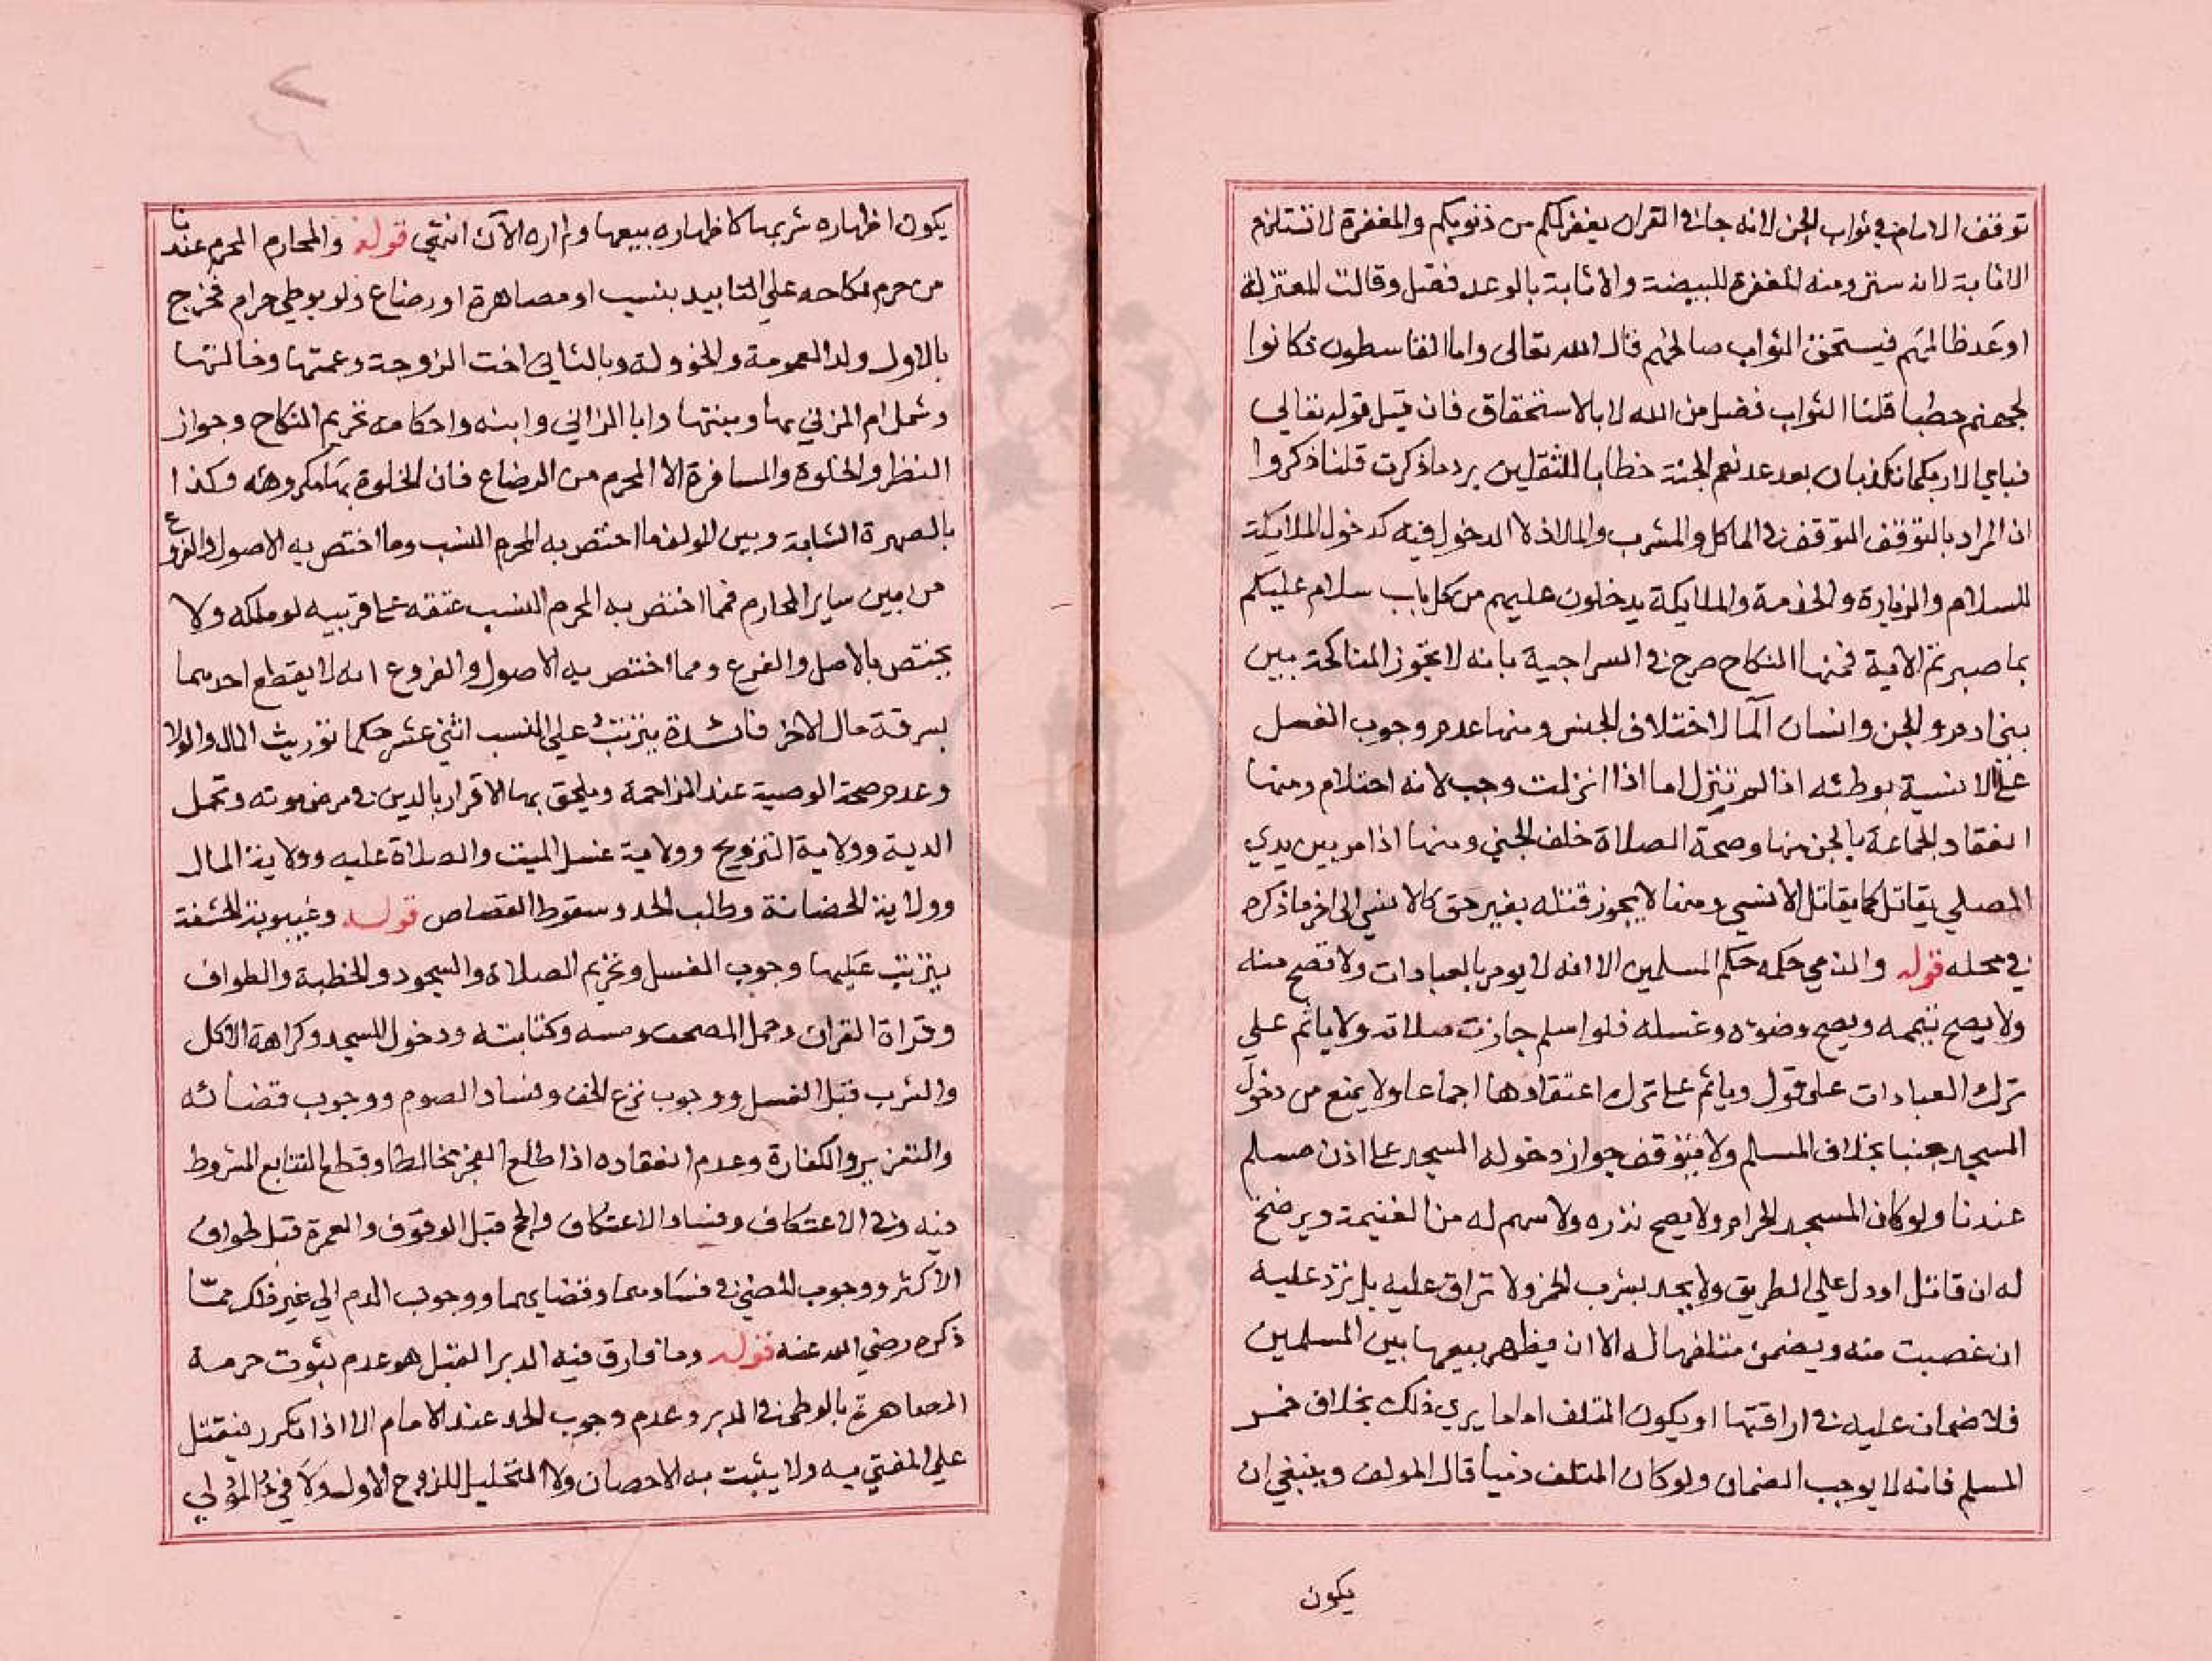 توقف الامام في ثواب الجن لانه جاء في القران يغفر لكم من ذنوبكم والمغفرة لا تستلزم
الاثابة لانه ستر ومنه المغفرة للبيضة والاثابة بالوعد فضل وقالت المعتزلة
اوعد ظالمهم فيستحق الثواب صالحهم قال الله تعالى واما القاسطون فكانوا
لجهنم حطبا قلنا الثواب فضل من الله لا بالاستحقاق فان قيل قوله تعالي
فباي الاء ربكما تكذبان بعد عد نعم الجنة خطابا للثقلين يرد ما ذكرت قلنا ذكروا
ان المراد بالتوقف التوقف في الماكل والمشرب والملاذ لا الدخول فيه كدخول الملايكة
للسلام والزيارة والخدمة والملايكة يدخلون عليهم من كل باب سلام عليكم
بما صبرتم الاية فمنها النكاح صرح في السراجية بانه لا تجوز المناكحة بين
بني ادم والجن وانسان الما لاختلاف الجنس ومنها عدم وجوب الغسل
على الانسية بوطئه اذا لم تنزل اما اذا انزلت وجب لانه احتلام ومنها
انعقاد الجماعة بالجن منها وصحة الصلاة خلف الجني ومنها اذا مر بين يدي
المصلي يقاتل كما يقاتل الانسي ومنها لا يجوز قتله بغير حق كالانسي الى اخر ما ذكره
في محله قوله والذمي حكمه حكم المسلمين الا انه لا يومر بالعبادات ولا تصح منه
ولا يصح تيممه ويصح وضوءه وغسله فلو اسلم جازت صلاته ولا ياثم علي
ترك العبادات على قول وياثم على ترك اعتقادها اجماعا ولا يمنع من دخول
المسجد جنبا بخلاف المسلم ولا يتوقف جواز دخوله المسجد على اذن مسلم
عندنا ولو كان المسجد الحرام ولا يصح نذره ولا سهم له من الغنيمة ويرضخ
له ان قاتل او دل علي الطريق ولا يحد بشرب الخمر ولا تراق عليه بل ترد عليه
ان غصبت منه ويضمن متلفها له الا ان يظهر بيعها بين المسلمين
فلا ضمان عليه في اراقتها او يكون المتلف اماما يري ذلك بخلاف خمر
المسلم فانه لا يوجب الضمان ولو كان المتلف ذميا قال المولف وينبغي ان
يكون
يكون اظهاره شربها كاظهاره بيعها ولم اره الان انتهي قوله والمحارم المحرم عندنا
من حرم نكاحه علي التابيد بنسب او مصاهرة او رضاع ولو بوطي حرام فخرج
بالاول ولد العمومة والخوولة وبالثاني اخت الزوجة وعمتها وخالتها
وشمل ام المزني بها وبنتها وابا الزاني وابنه واحكامه تحريم النكاح وجواز
النظر والخلوة والمسافرة الا المحرم من الرضاع فان الخلوة بها مكروهة وكذا
بالصهرة الشابة وبين المولف ما اختص به المحرم النسب وما اختص به الاصول والفروع
من بين ساير المحارم فمما اختص به المحرم النسب عتقه على قريبه لو ملكه ولا
يختص بالاصل والفرع ومما اختص به الاصول والفروع انه لا يقطع احدهما
بسرقة مال الاخر فائدة يترتب علي النسب اثني عشر حكما توريث المال والولا
وعدم صحة الوصية عند المزاحمة ويلحق بها الاقرار بالدين في مرض موته وتحمل
الدية وولاية التزويج وولاية غسل الميت والصلاة عليه وولاية المال
وولاية الحضانة وطلب الحد وسقوط القصاص قوله وغيبوبة الحشفة
يترتب عليها وجوب الغسل وتحريم الصلاة والسجود والخطبة والطواف
وقراة القران وحمل المصحف ومسه وكتابته ودخول المسجد وكراهة الاكل
والشرب قبل الغسل ووجوب نزع الخف وفساد الصوم ووجوب قضائه
والتعزير والكفارة وعدم انعقاده اذا طلع الفجر مخالطا وقطع التتابع المشروط
فيه وفي الاعتكاف وفساد الاعتكاف والحج قبل الوقوف والعمرة قبل طواف
الاكثر ووجوب المضي في فسادهما وقضايهما ووجوب الدم الي غير ذلك مما
ذكره رضي الله عنه قوله وما فارق فيه الدبر القبل هو عدم ثبوت حرمة
المصاهرة بالوطئ في الدبر وعدم وجوب الحد عند الامام الا اذا تكرر فيقتل
علي المفتي به ولا يثبت به الاحصان ولا التحليل للزوج الاول ولا في المولي